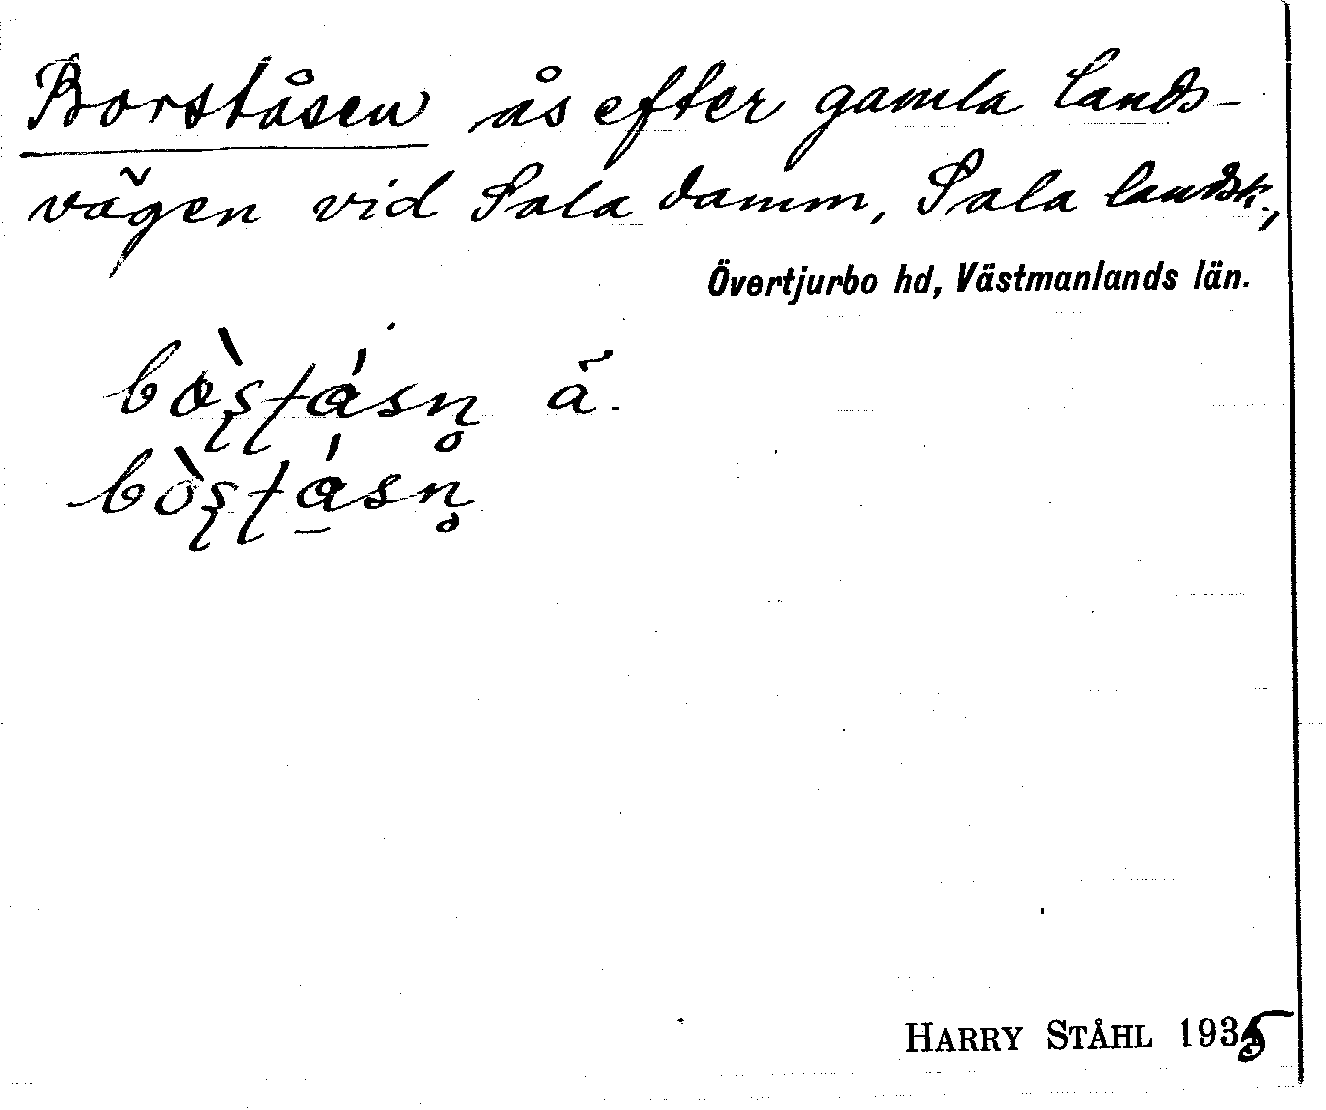 Borståsen ås efter gamla lands-
vägen vid Sala damm, Sala landsk.,
Övertjurbo hd, Västmanlands län.
bòʂʈásn̥ ä.
bòʂʈá̠sn̥
HARRY STÅHL 1935